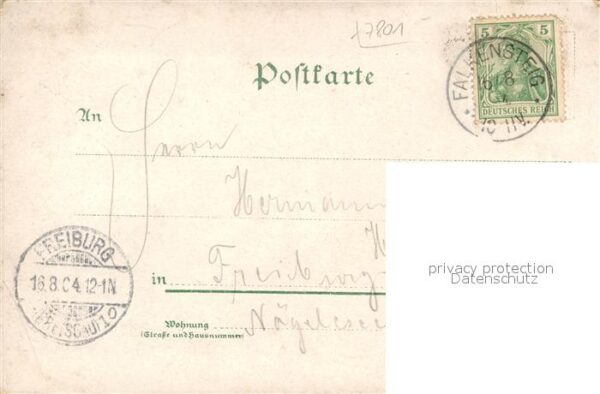 17801
5 5
DEUTSCHES REICH
FALKENSTEIG
16/8
04
10-11V.
Postkarte
An
Herrn
Hermann
H
FREIBURG
16.8.04.12-1N
in Freiburg
privacy protection
Datenschutz
Wohnung
(Straße und Hausnummer)